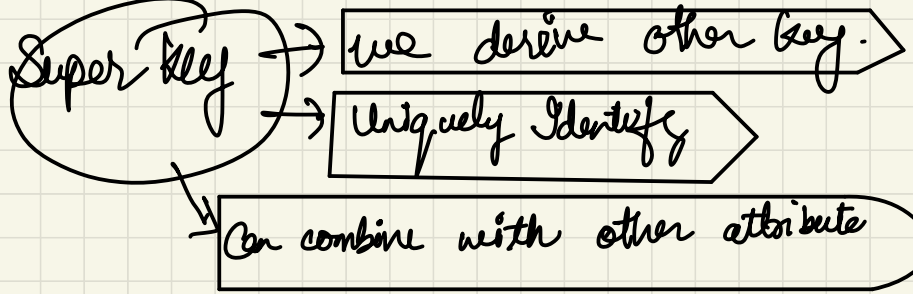 Super Key
we derive other key.
Uniquely Identify
Can combine with other attribute